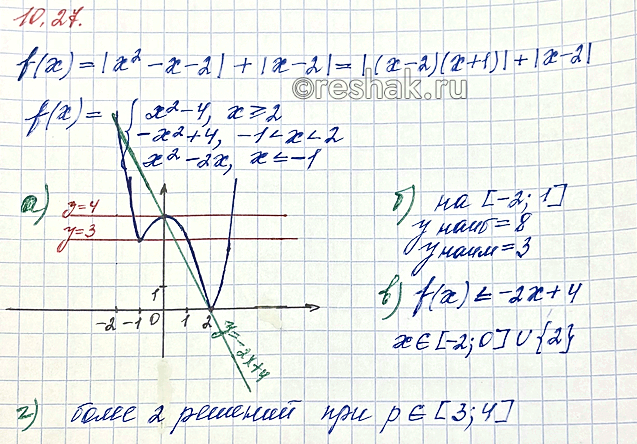 10.27.
f(x) = |x² - x - 2| + |x - 2| = |(x-2)(x+1)| + |x-2|
©reshak.ru
f(x) = { x² - 4, x ≥ 2
-x² + 4, -1 < x < 2
x² - 2x, x ≤ -1
а)
y = 4
y = 3
1
-2 -1 0 1 2
y = -2x + 4
б) на [-2; 1]
y наиб = 8
y наим = 3
в) f(x) ≤ -2x + 4
x ∈ [-2; 0] ∪ {2}
г) более 2 решений при p ∈ [3; 4]